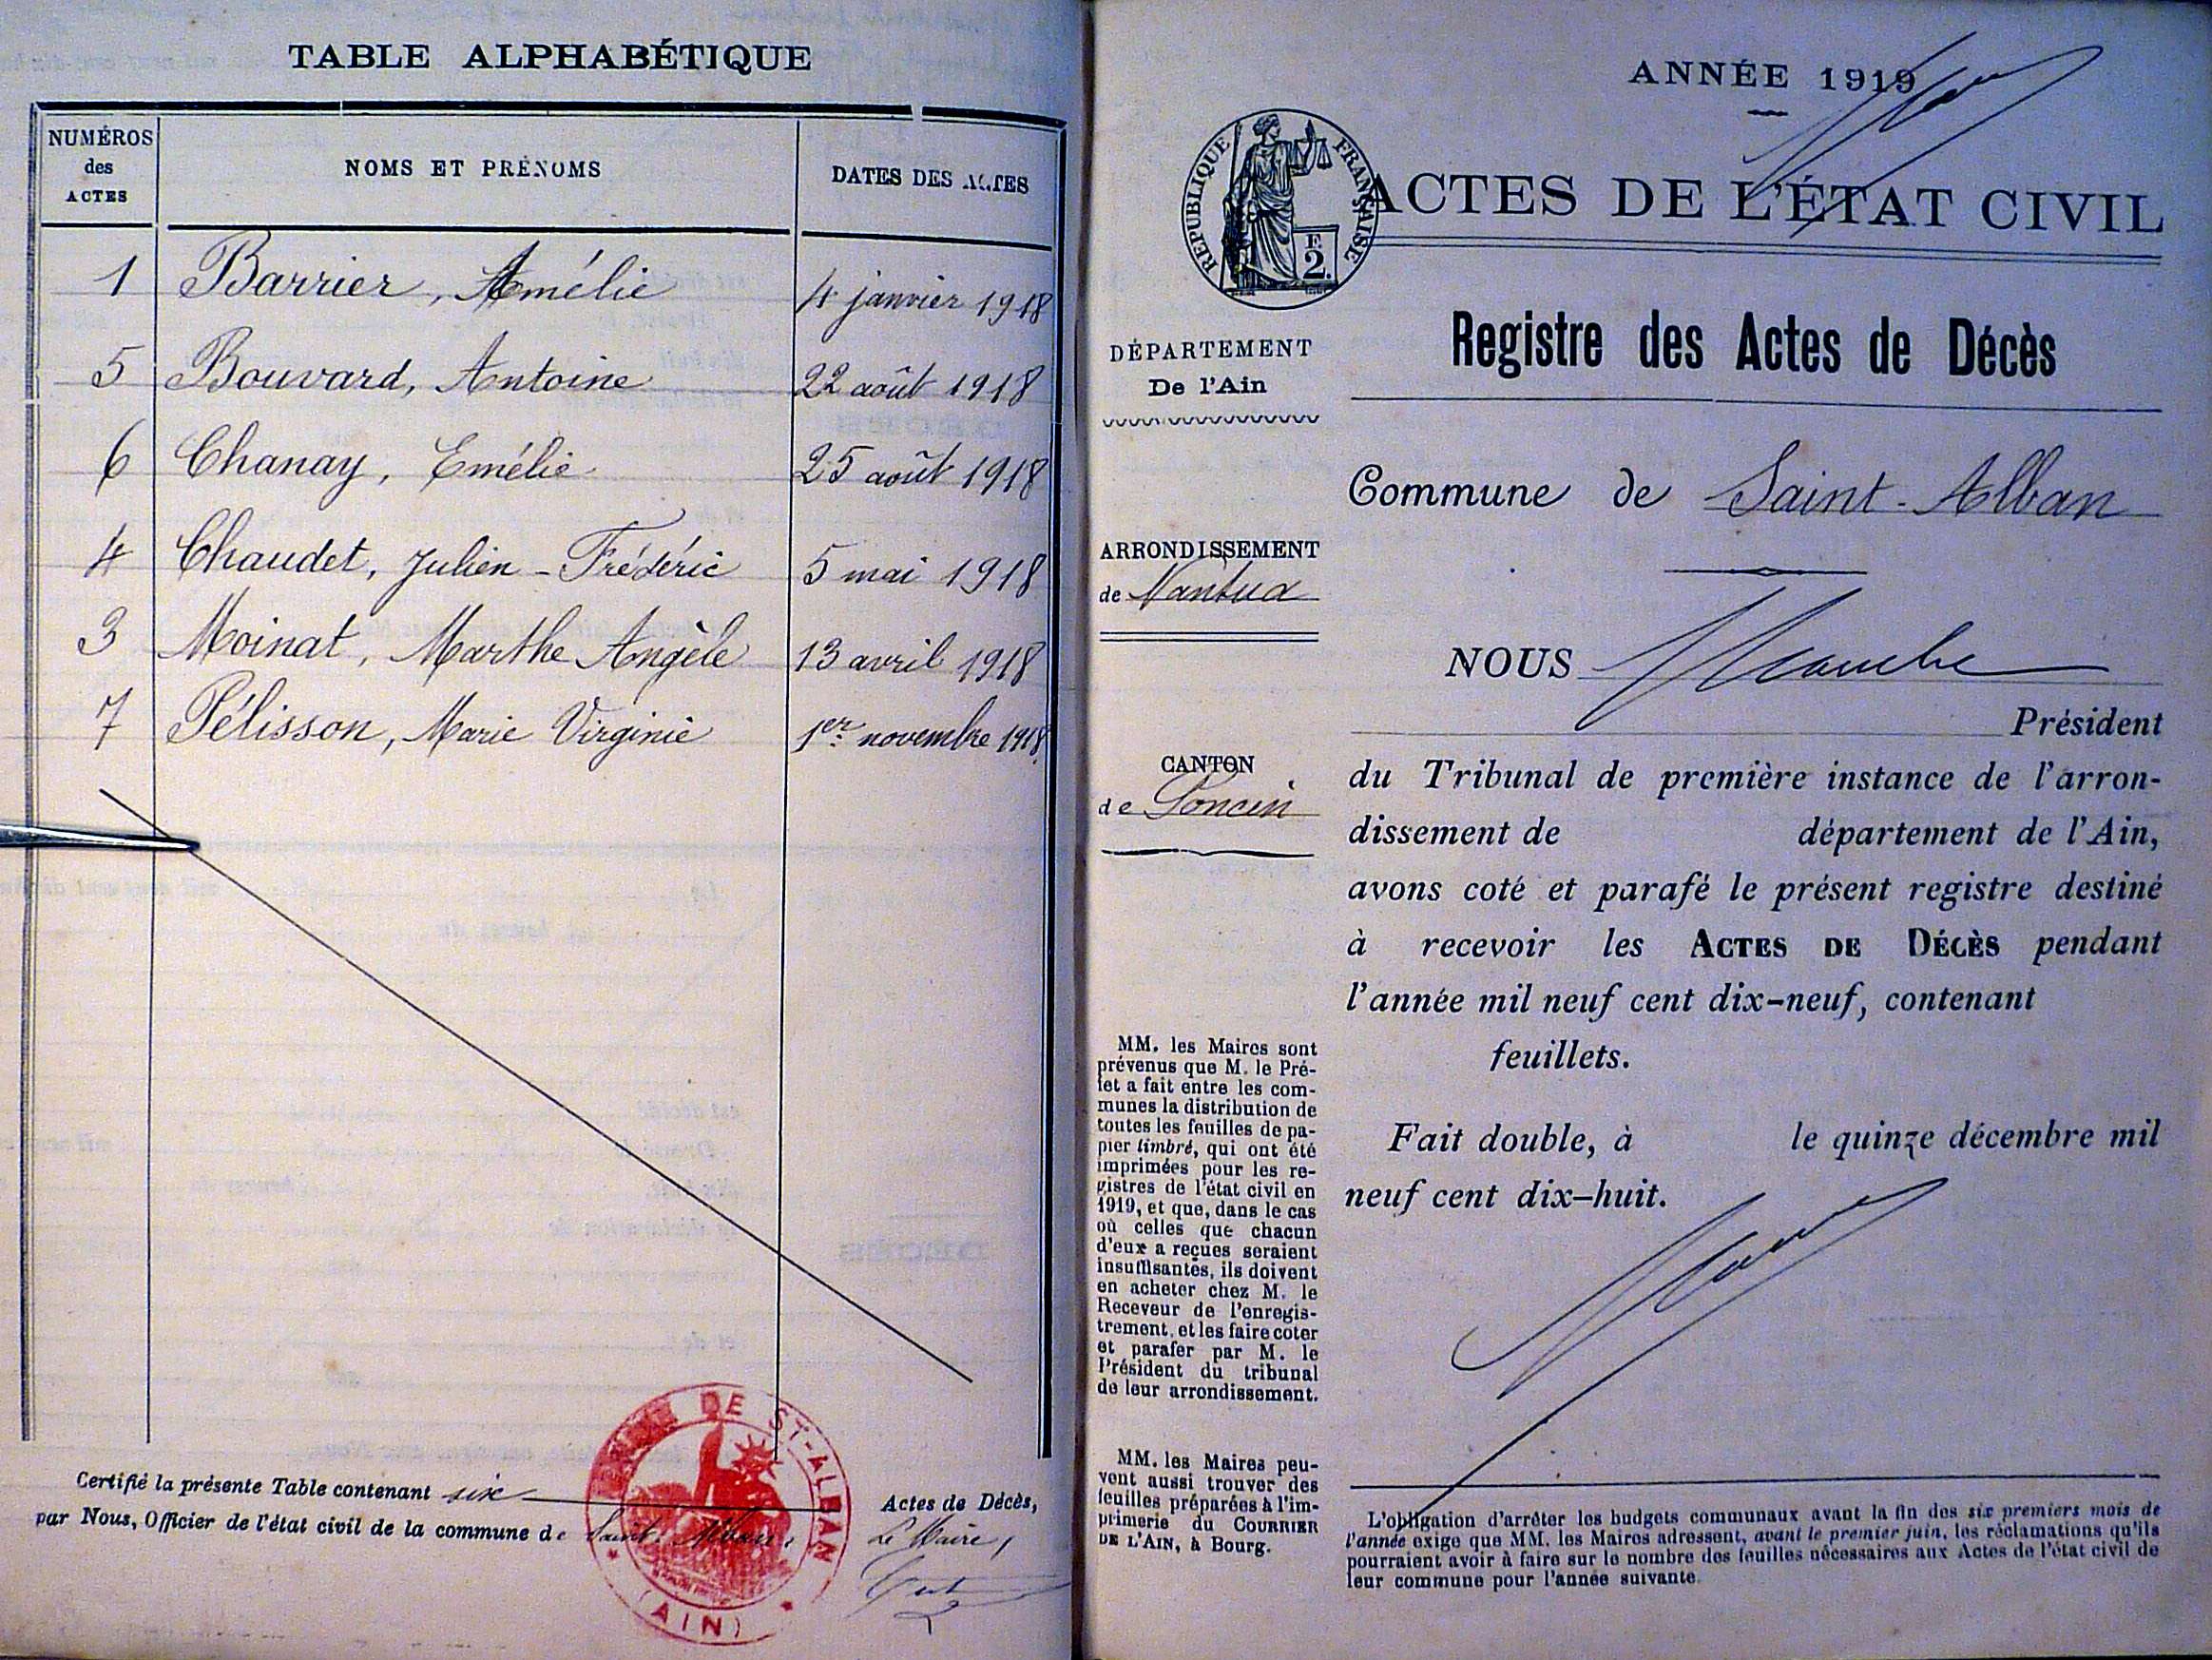 TABLE ALPHABÉTIQUE
NUMÉROS des ACTES
NOMS ET PRÉNOMS
DATES DES ACTES
1 Barrier, Amélie 4 janvier 1918
5 Bouvard, Antoine 22 août 1918
6 Chanay, Emélie 25 août 1918
4 Chaudet, Julien - Frédéric 5 mai 1918
3 Moinat, Marthe Angèle 13 avril 1918
7 Pélisson, Marie Virginie 1er novembre 1918.
Certifié la présente Table contenant six Actes de Décès,
par Nous, Officier de l'état civil de la commune de Saint-Alban.
Le Maire,
MAIRIE DE ST-ALBAN
(AIN)
ANNÉE 1919
RÉPUBLIQUE FRANÇAISE
F. 2.
ACTES DE L'ÉTAT CIVIL
DÉPARTEMENT
De l'Ain
ARRONDISSEMENT
de Nantua
CANTON
de Poncin
MM. les Maires sont
prévenus que M. le Pré-
fet a fait entre les com-
munes la distribution de
toutes les feuilles de pa-
pier timbré, qui ont été
imprimées pour les re-
gistres de l'état civil en
1919, et que, dans le cas
où celles que chacun
d'eux a reçues seraient
insuffisantes, ils doivent
en acheter chez M. le
Receveur de l'enregis-
trement, et les faire coter
et parafer par M. le
Président du tribunal
de leur arrondissement.
MM. les Maires peu-
vent aussi trouver des
feuilles préparées à l'im-
primerie du COURRIER
DE L'AIN, à Bourg.
Registre des Actes de Décès
Commune de Saint-Alban
NOUS
Président
du Tribunal de première instance de l'arron-
dissement de département de l'Ain,
avons coté et parafé le présent registre destiné
à recevoir les ACTES DE DÉCÈS pendant
l'année mil neuf cent dix-neuf, contenant
feuillets.
Fait double, à le quinze décembre mil
neuf cent dix-huit.
L'obligation d'arrêter les budgets communaux avant la fin des six premiers mois de
l'année exige que MM. les Maires adressent, avant le premier juin, les réclamations qu'ils
pourraient avoir à faire sur le nombre des feuilles nécessaires aux Actes de l'état civil de
leur commune pour l'année suivante.